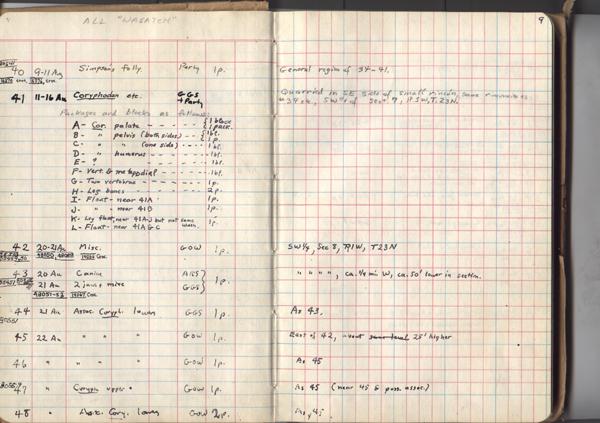 ALL "WASATCH"
9
40 9-11 Au Simpson's folly. Party 1p. General region of 34-41.
41 11-16 Au Coryphodon etc. GGS + Party Quarried in SE side of small rincon, same
#34 etc, SW¼ of Sec. 9, R1W, T23N.
Packages and blocks as follows:
A- Cor. palate - - - - - {1 block 1 pack.
B- " pelvis (both sides) - - {1 bl. 1 p.
C- " " (one side) - - - - 1 bl.
D- " humerus - - - - - 1 bl.
E- ? - - - - - 1 bl.
F- Vert. & metapodial - - - - 1 bl.
G- Two vertebrae - - - - - 1p.
H- Leg bones - - - - - 2p.
I- Float - near 41A - - - - 1p.
J- " " near 41B 1p.
K- Leg float, near 41A-J but not same 1p.
L- Float - near 41A-C when. 1p.
42 20-21 Au Misc. GOW 1p. SW¼, Sec 8, R1W, T23N
43 20 Au Canine AIES } 1p. " " " ", ca. ¼ mi W, ca. 50' lower in section.
21 Au 2 jaws & misc GGS
44 21 Au Assoc. Coryph. lowers GGS 1p. As 43.
45 22 Au " " " GOW 1p. East of 42, about same level 25' higher
46 " " " " GOW 1p. As 45
47 " Coryph upper " GOW 1p. As 45 (near 45 & poss. assoc.)
48 " Assoc. Cory. lowers GOW 2p. As 45